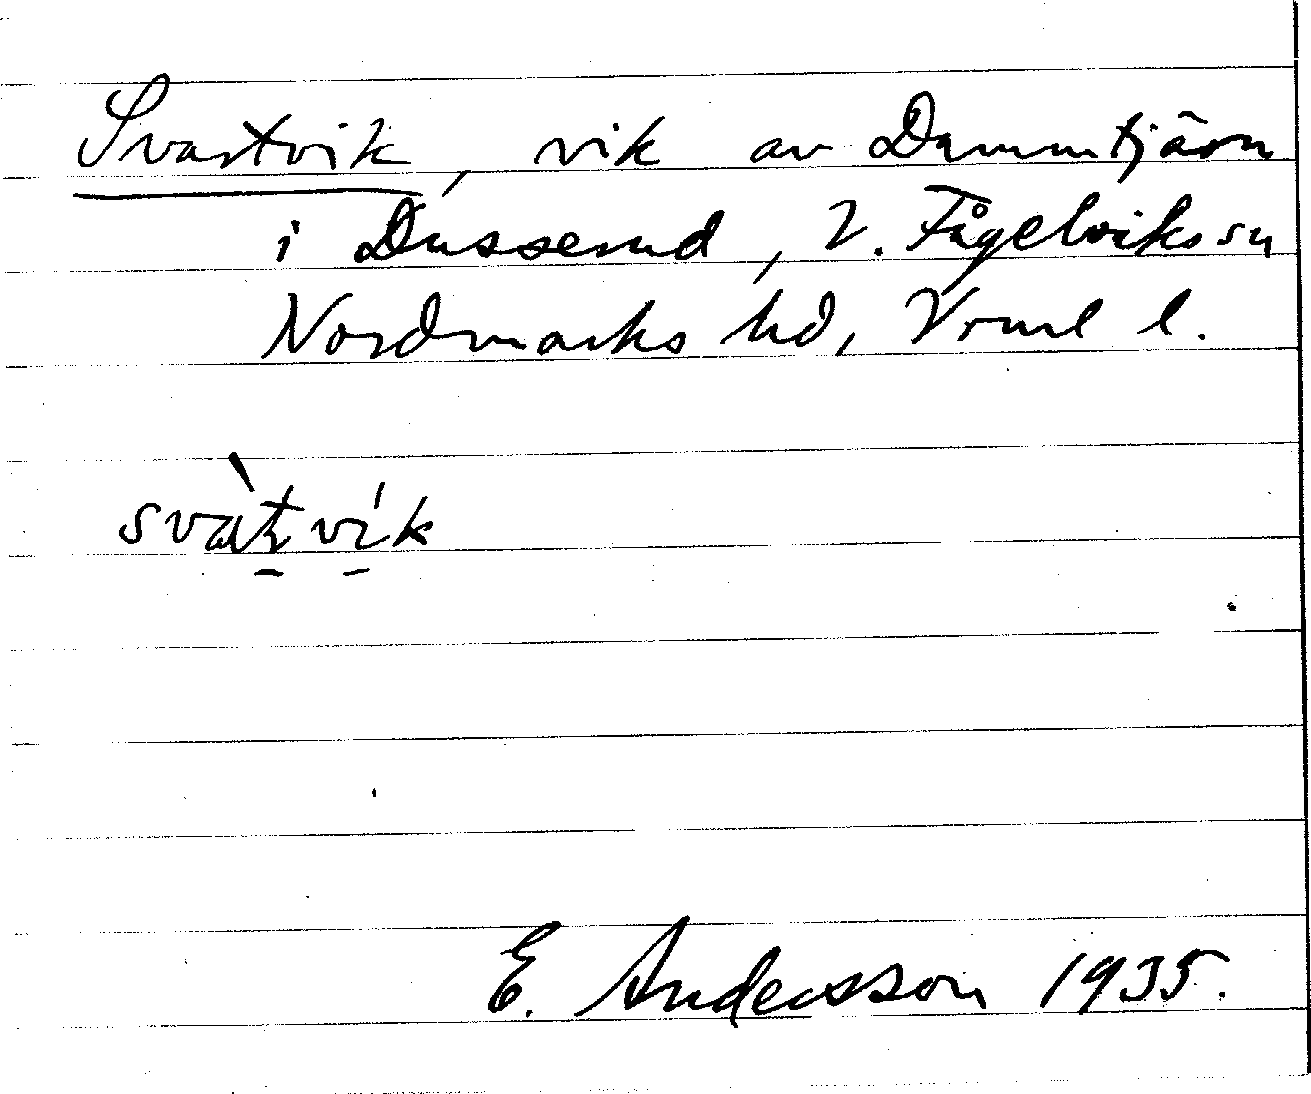 Svartvik, vik av Dammtjärn
i Dusserud, V. Fågelviks sn
Nordmarks hd, Vrml l.
svàṭvík
E. Andersson 1935.